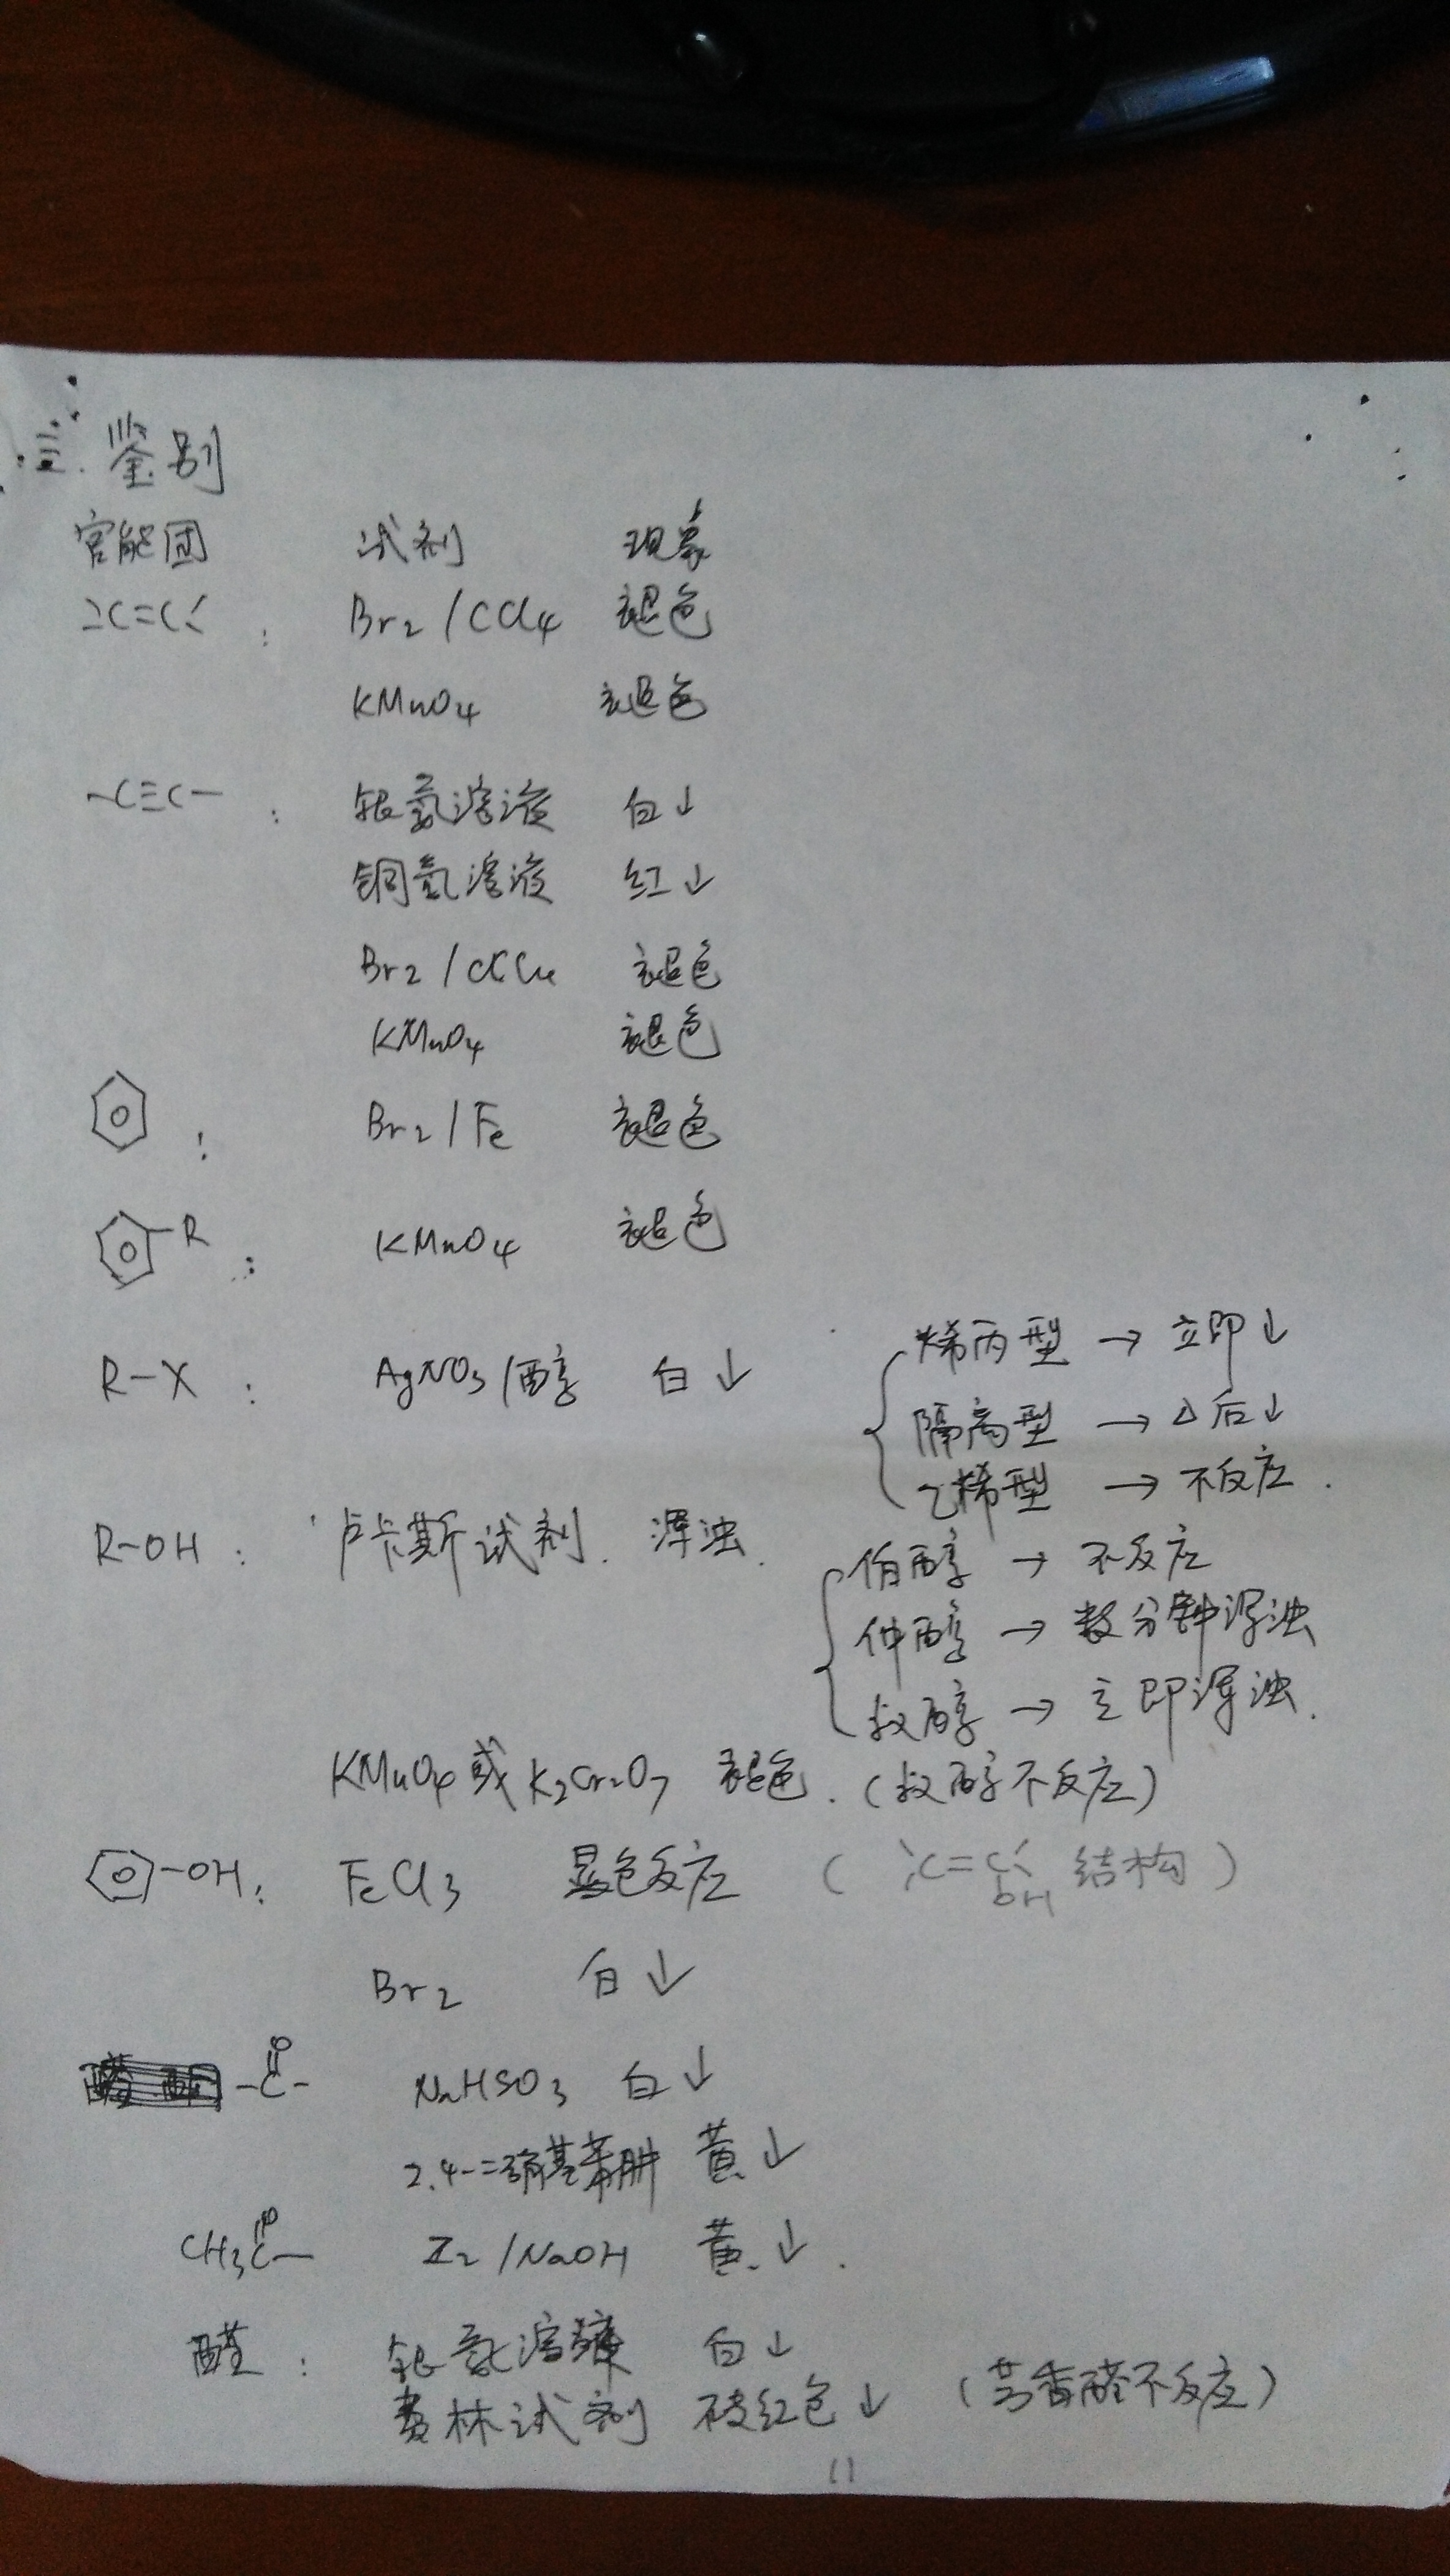 三. 鉴别
官能团 试剂 现象
>C=C< : Br2/CCl4 褪色
KMnO4 褪色
-C≡C- : 银氨溶液 白↓
铜氨溶液 红↓
Br2/CCl4 褪色
KMnO4 褪色
: Br2/Fe 褪色
-R : KMnO4 褪色
R-X : AgNO3/醇 白↓
烯丙型 → 立即↓
隔离型 → △后↓
乙烯型 → 不反应.
R-OH : 卢卡斯试剂. 浑浊.
伯醇 → 不反应
仲醇 → 数分钟浑浊
叔醇 → 立即浑浊.
KMnO4或K2Cr2O7 褪色. (叔醇不反应)
-OH: FeCl3 显色反应 ( >C=C< OH 结构 )
Br2 白↓
O
-C- NaHSO3 白↓
2.4-二硝基苯肼 黄↓
O
CH3C- I2/NaOH 黄.↓.
醛: 银氨溶液 白↓
费林试剂 砖红色↓ (芳香醛不反应)
11